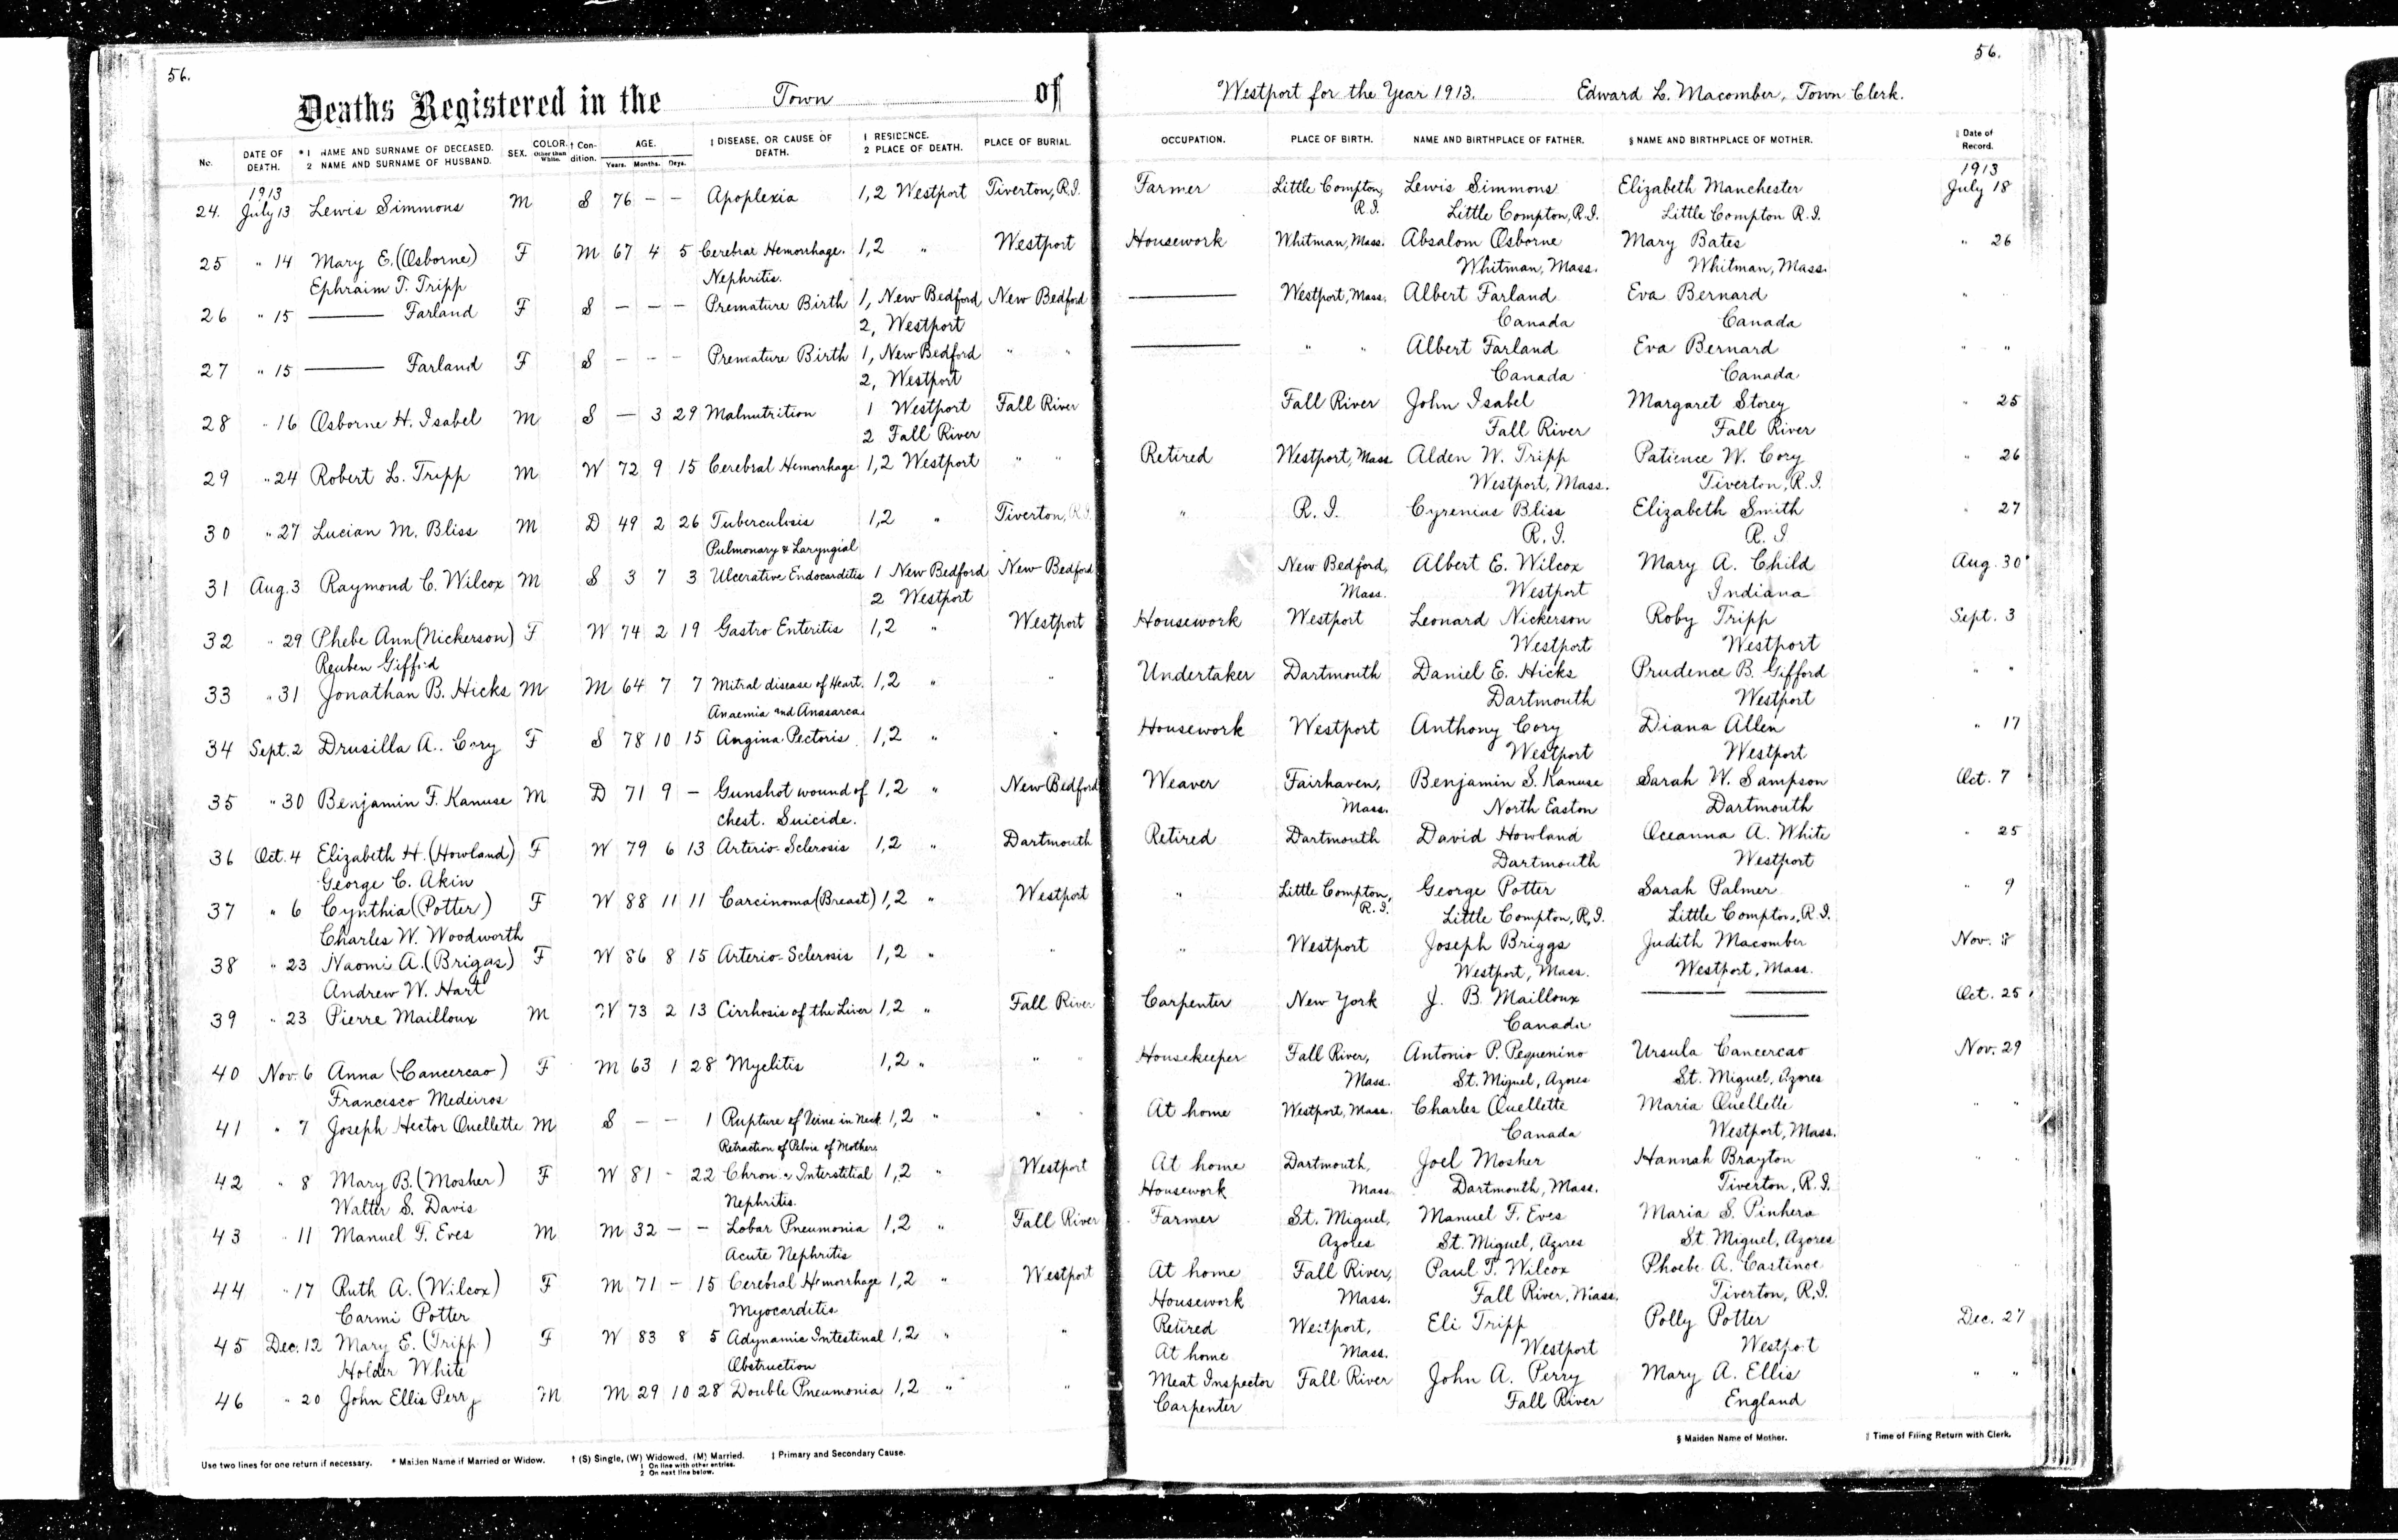 56.
56.
Deaths Registered in the Town of Westport for the Year 1913. Edward L. Macomber, Town Clerk.
No. DATE OF DEATH. * 1 NAME AND SURNAME OF DECEASED. 2 NAME AND SURNAME OF HUSBAND. SEX. COLOR. Other than White. † Condition. AGE. Years. Months. Days. ‡ DISEASE, OR CAUSE OF DEATH. 1 RESIDENCE. 2 PLACE OF DEATH. PLACE OF BURIAL. OCCUPATION. PLACE OF BIRTH. NAME AND BIRTHPLACE OF FATHER. § NAME AND BIRTHPLACE OF MOTHER. ‖ Date of Record.
1913 1913
24. July 13 Lewis Simmons M S 76 – – Apoplexia 1,2 Westport Tiverton, R.I. Farmer Little Compton, Lewis Simmons Elizabeth Manchester July 18
R.I. Little Compton, R.I. Little Compton R.I.
25 " 14 Mary E. (Osborne) F M 67 4 5 Cerebral Hemorrhage. 1,2 " Westport Housework Whitman, Mass. Absalom Osborne Mary Bates " 26
Ephraim T. Tripp Nephritis. Whitman, Mass. Whitman, Mass.
26 " 15 —— Farland F S – – – Premature Birth 1, New Bedford New Bedford —— Westport, Mass. Albert Farland Eva Bernard "
2, Westport Canada Canada
27 " 15 —— Farland F S – – – Premature Birth 1, New Bedford " " —— " " Albert Farland Eva Bernard " "
2, Westport Canada Canada
28 " 16 Osborne H. Isabel M S – 3 29 Malnutrition 1 Westport Fall River Fall River John Isabel Margaret Storey " 25
2 Fall River Fall River Fall River
29 " 24 Robert L. Tripp M W 72 9 15 Cerebral Hemorrhage 1,2 Westport " " Retired Westport, Mass Alden W. Tripp Patience W. Cory " 26
Westport, Mass. Tiverton, R.I.
30 " 27 Lucian M. Bliss M D 49 2 26 Tuberculosis 1,2 " Tiverton, R.I. " R.I. Cyrenius Bliss Elizabeth Smith " 27
Pulmonary & Laryngial R.I. R.I
31 Aug. 3 Raymond C. Wilcox M S 3 7 3 Ulcerative Endocarditis 1 New Bedford New Bedford New Bedford, Albert E. Wilcox Mary A. Child Aug. 30
2 Westport Mass. Westport Indiana
32 " 29 Phebe Ann (Nickerson) F W 74 2 19 Gastro Enteritis 1,2 " Westport Housework Westport Leonard Nickerson Roby Tripp Sept. 3
Reuben Gifford Westport Westport
33 " 31 Jonathan B. Hicks M M 64 7 7 Mitral disease of Heart. 1,2 " " Undertaker Dartmouth Daniel E. Hicks Prudence B. Gifford " "
Anaemia and Anasarca Dartmouth Westport
34 Sept. 2 Drusilla A. Cory F S 78 10 15 Angina Pectoris 1,2 " " Housework Westport Anthony Cory Diana Allen " 17
Westport Westport
35 " 30 Benjamin F. Kanuse M D 71 9 – Gunshot wound of 1,2 " New Bedford Weaver Fairhaven, Benjamin S. Kanuse Sarah W. Sampson Oct. 7
chest. Suicide. Mass. North Easton Dartmouth
36 Oct. 4 Elizabeth H. (Howland) F W 79 6 13 Arterio-Sclerosis 1,2 " Dartmouth Retired Dartmouth David Howland Oceanna A. White " 25
George C. Akin Dartmouth Westport
37 " 6 Cynthia (Potter) F W 88 11 11 Carcinoma (Breast) 1,2 " Westport " Little Compton, George Potter Sarah Palmer " 9
Charles W. Woodworth R.I. Little Compton, R.I. Little Compton, R.I.
38 " 23 Naomi A. (Briggs) F W 86 8 15 Arterio-Sclerosis 1,2 " " " Westport Joseph Briggs Judith Macomber Nov. 8
Andrew W. Hart Westport, Mass. Westport, Mass.
39 " 23 Pierre Mailloux M W 73 2 13 Cirrhosis of the Liver 1,2 " Fall River Carpenter New York J. B. Mailloux —— —— Oct. 25
Canada ——
40 Nov. 6 Anna (Cancercao) F M 63 1 28 Myelitis 1,2 " " " Housekeeper Fall River, Antonio P. Pequenino Ursula Cancercao Nov. 29
Francisco Medeiros Mass. St. Miguel, Azores St. Miguel, Azores
41 " 7 Joseph Hector Ouellette M S – – 1 Rupture of Veins in Neck 1,2 " " " At home Westport, Mass. Charles Ouellette Maria Ouellette " "
Retraction of Pelvis of Mother. Canada Westport, Mass.
42 " 8 Mary B. (Mosher) F W 81 - 22 Chronic Interstitial 1,2 " Westport At home Dartmouth, Joel Mosher Hannah Brayton " "
Walter S. Davis Nephritis. Housework Mass Dartmouth, Mass. Tiverton, R.I.
43 " 11 Manuel F. Eves M M 32 – – Lobar Pneumonia 1,2 " Fall River Farmer St. Miguel, Manuel F. Eves Maria S. Pinhero
Acute Nephritis Azores St. Miguel, Azores St. Miguel, Azores
44 " 17 Ruth A. (Wilcox) F M 71 – 15 Cerebral Hemorrhage 1,2 " Westport At home Fall River, Paul T. Wilcox Phoebe A. Castince
Carmi Potter Myocarditis Housework Mass. Fall River, Mass. Tiverton, R.I.
45 Dec. 12 Mary E. (Tripp) F W 83 8 5 Adynamic Intestinal 1,2 " " Retired Westport, Eli Tripp Polly Potter Dec. 27
Holder White Obstruction At home Mass. Westport Westport
46 " 20 John Ellis Perry M M 29 10 28 Double Pneumonia 1,2 " " Meat Inspector Fall River John A. Perry Mary A. Ellis " "
Carpenter Fall River England
Use two lines for one return if necessary. * Maiden Name if Married or Widow. † (S) Single, (W) Widowed, (M) Married. ‡ Primary and Secondary Cause. § Maiden Name of Mother. ‖ Time of Filing Return with Clerk.
1 On line with other entries.
2 On next line below.